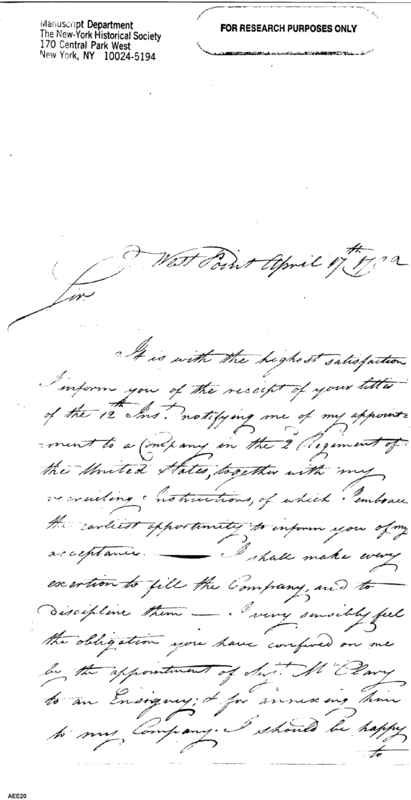 Manuscript Department
The New-York Historical Society
170 Central Park West
New York, NY 10024-5194
FOR RESEARCH PURPOSES ONLY
West Point April 17th
Sir
It is with the highest satisfaction
I inform you of the receipt of your letter
of the 12th Inst. notifying me of my appoint=
=ment to a Company in the 2d Regiment of
the United States, together with my
recruiting Instructions, of which I embrace
the earliest opportunity to inform you of my
acceptance. — I shall make every
exertion to fill the Company, and to
Discipline them — I very sensibly feel
the obligation you have confired on me
be the appointment of Mc Clary
to an Ensigncy; & for annexing him
to my Company. I should be happy
to
AEE20